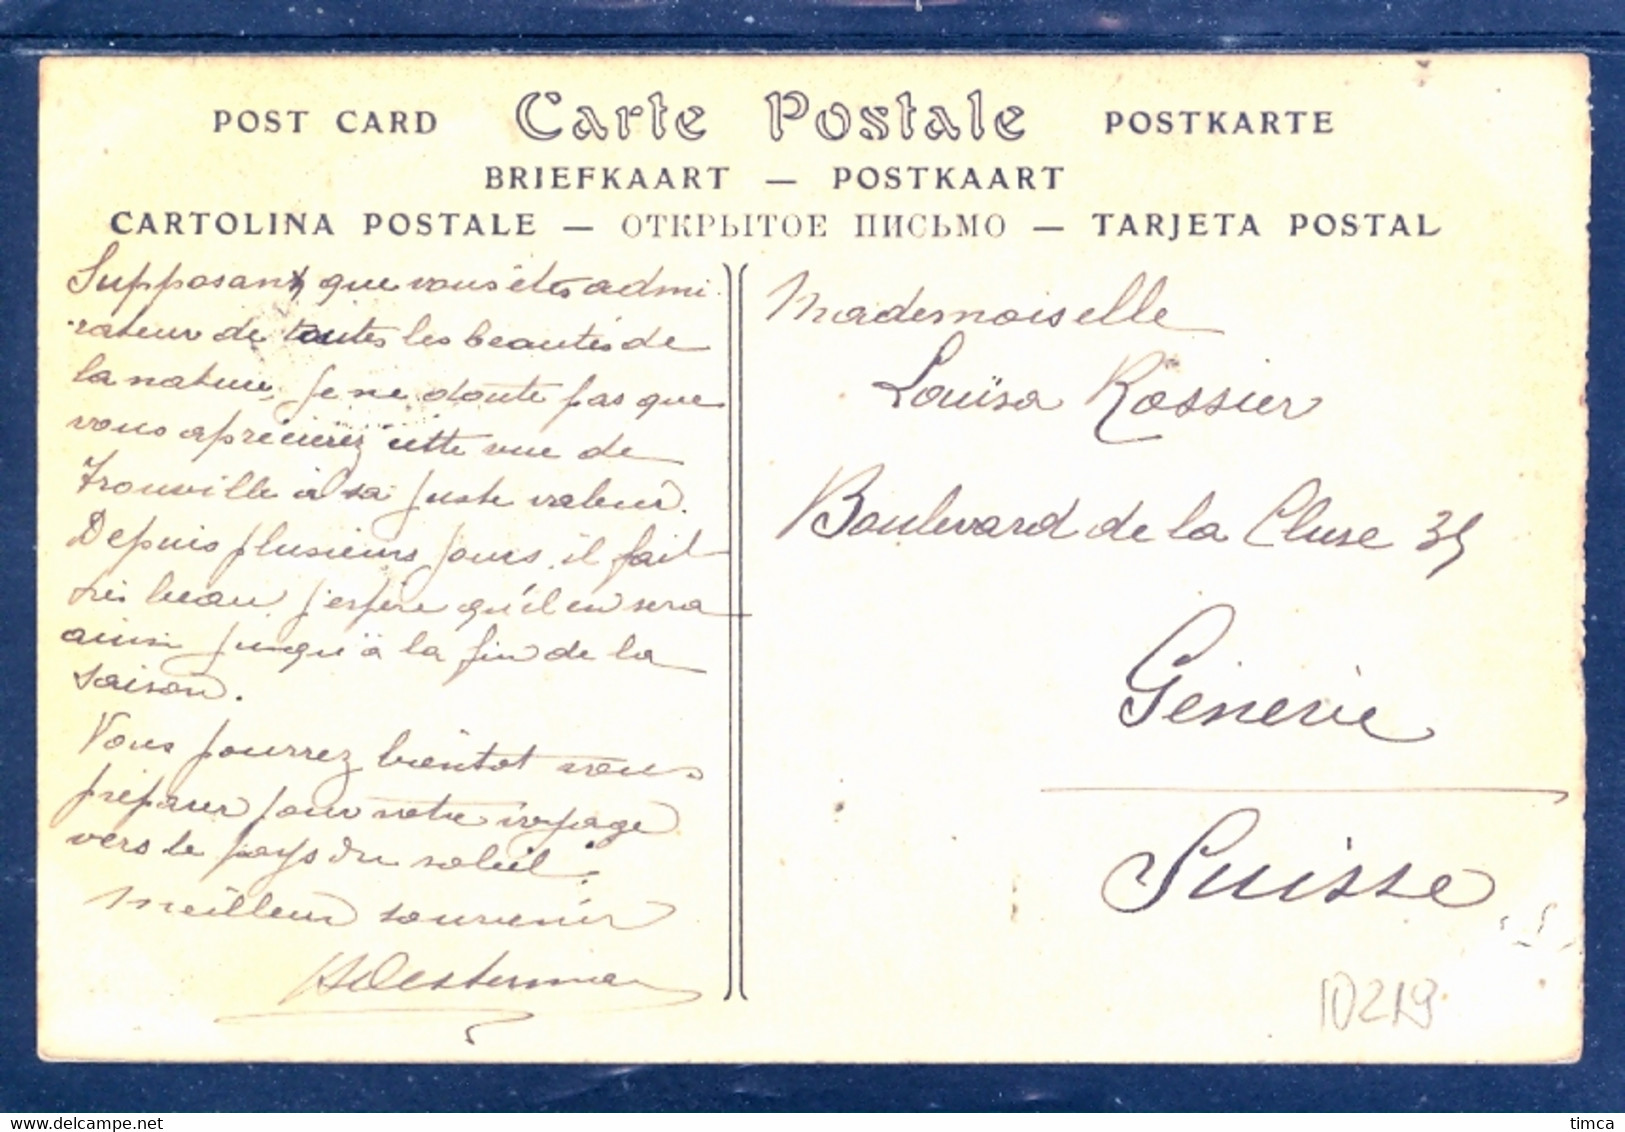 POST CARD Carte Postale POSTKARTE
BRIEFKAART — POSTKAART
CARTOLINA POSTALE — ОТКРЫТОЕ ПИСЬМО — TARJETA POSTAL
Supposant que vous êtes admi-
rateur de toutes les beautés de
la nature, je ne doute pas que
vous aprécierez cette vue de
Trouville à sa juste valeur.
Depuis plusieurs jours il fait
très beau, j'espère qu'il en sera
ainsi jusqu'à la fin de la
saison.
Vous pourrez bientôt vous
préparer pour votre voyage
vers le pays du soleil.
Meilleur souvenir
Mademoiselle
Louïsa Rossier
Boulevard de la Cluse 35
Genève
Suisse
10219
delcampe.net
timca